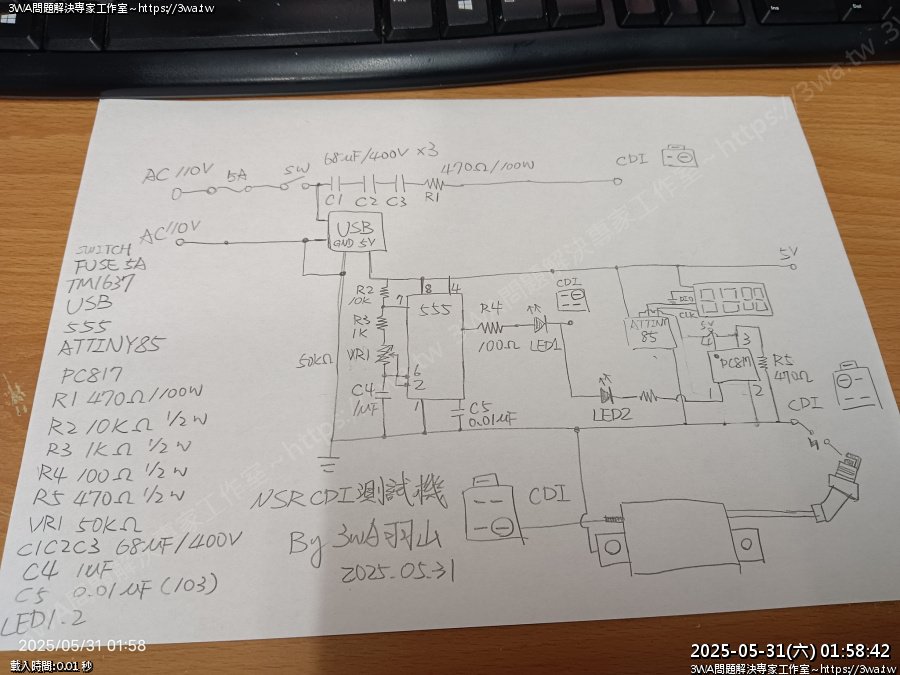 3WA問題解決專家工作室~https://3wa.tw
AC 110V
5A
SW
68uF/400V x3
C1 C2 C3
470Ω/100W
R1
CDI
AC 110V
USB
GND 5V
5V
SWITCH
FUSE 5A
TM1637
USB
555
ATTINY85
PC817
R1 470Ω/100W
R2 10KΩ 1/2W
R3 1KΩ 1/2W
R4 100Ω 1/2W
R5 470Ω 1/2W
VR1 50KΩ
C1C2C3 68uF/400V
C4 1uF
C5 0.01uF (103)
LED1.2
R2
10K
R3
1K
50KΩ VR1
C4
1uF
7
8
4
555
6
2
1
C5
0.01uF
R4
100Ω
LED1
CDI
LED2
ATTINY
85
DIO
CLK
5V
4
3
PC817
1
2
R5
470Ω
CDI
NSR CDI測試機
By 3WA羽山
2025.05.31
CDI
2025/05/31 01:58
載入時間:0.01 秒
2025-05-31(六) 01:58:42
3WA問題解決專家工作室~https://3wa.tw